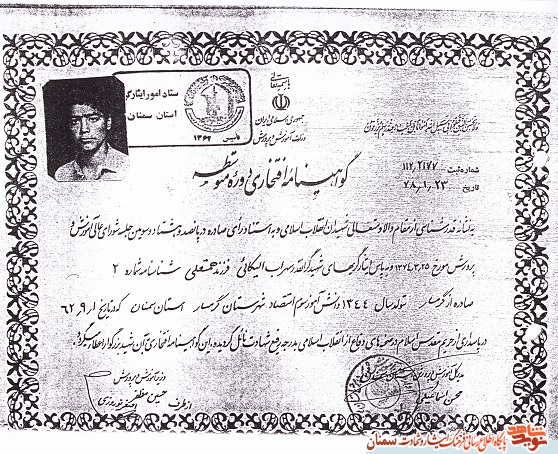 بسمه تعالی
ستاد امور ایثارگران
استان سمنان
تأسیس ۱۳۶۲
جمهوری اسلامی ایران
وزارت آموزش و پرورش
شماره ثبت ۱۱۲،۲۱۷۷
تاریخ ۷۸،۱،۲۳
گواهینامه افتخاری دوره متوسطه
به نشانه قدرشناسی از مقام والا و متعالی شهیدان انقلاب اسلامی و به استناد رأی صادره در پانصد و هشتاد و سومین جلسه شورای عالی آموزش و
پرورش مورخ ۱۳۷۴،۳،۲۵ و به پاس ایثارگریهای شهید گرانقدر سهراب الیکائی فرزند حمتعلی شناسنامه شماره ۲
صادره از گرمسار تولد سال ۱۳۴۴ دانش آموز سوم اقتصاد شهرستان گرمسار استان سمنان که در تاریخ ۶۲،۹،۱
در پاسداری از حریم مقدس اسلام در صحنه های دفاع از انقلاب اسلامی به درجه رفیع شهادت نائل گردیده، این گواهینامه افتخاری آن شهید بزرگوار اعطا میگردد.
وزیر آموزش و پرورش
حسین مظفر
از طرف
مدیر کل آموزش و پرورش استان
نوید شاهد
پایگاه اطلاع رسانی فرهنگ ایثار و شهادت سمنان